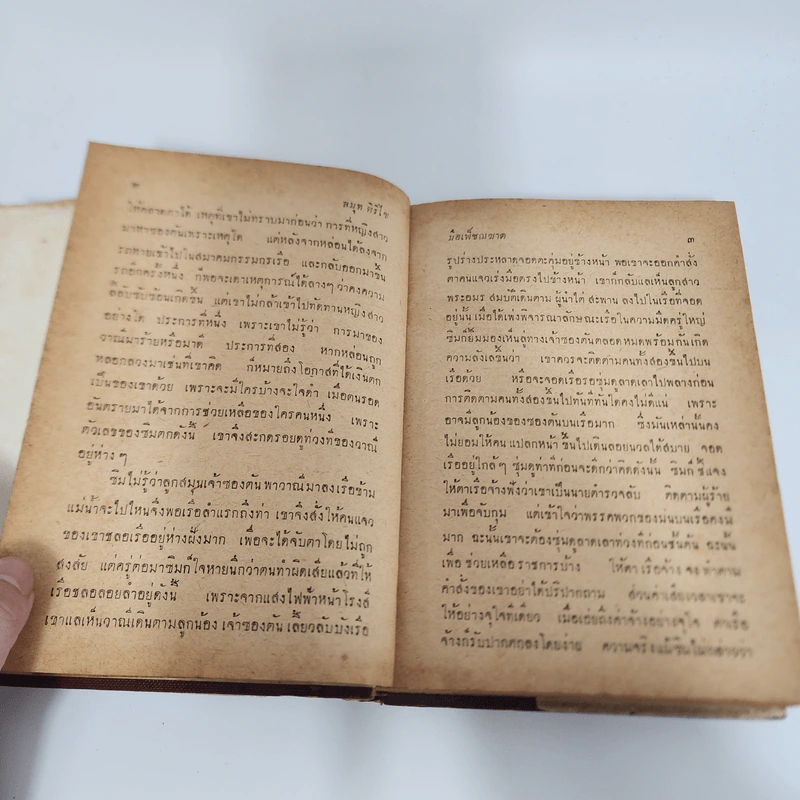 ๒ พมุท ศิริไข
ให้ตลาดตาได้ เหตุที่เขาไม่ทราบมาก่อนว่า การที่หญิงสาว
มาหาซองคันเพราะเหตุใด แต่หลังจากหล่อนได้ลงจาก
รถหายเข้าไปในสมาคมกรรมกรเรือ และกลับออกมาขึ้น
รถอีกครั้งหนึ่ง ก็พอจะเดาเหตุการณ์ได้ลางๆ ว่าคงความ
ลี้ลับซับซ้อนเกิดขึ้น แต่เขาไม่กล้าเข้าไปทัดทานหญิงสาว
อย่างใด ประการที่หนึ่ง เพราะเขาไม่รู้ว่า การมาของ
วาณีมาร้ายหรือมาดี ประการที่สอง หากหล่อนถูก
หลอกลวงมาเช่นที่เขาคิด ก็หมายถึงโอกาสที่ได้เงินตก
เป็นของเขาด้วย เพราะจะมีใครบ้างจะใจดำ เมื่อตนรอด
อันตรายมาได้จากการช่วยเหลือของใครคนหนึ่ง เพราะ
ตัวเลขของซิมตกดังนี้ เขาจึงสะกดรอยดูท่วงทีของวาณี
อยู่ห่าง ๆ
ซิมไม่รู้ว่าลูกสมุนเจ้าซองตันพาวาณีมาลงเรือข้าม
แม่น้ำจะไปไหนจึงพอเรือลำแรกถึงท่า เขาจึงสั่งให้คนแจว
ของเขาชลอเรืออยู่ห่างฝั่งมาก เพื่อจะได้จับตาโดยไม่ถูก
สงสัย แต่ครู่ต่อมาซิมก็ใจหายนึกว่าตนทำผิดเสียแล้วที่ให้
เรือชลอลอยลำอยู่ดังนั้น เพราะจากแสงไฟฟ้าหน้าโรงสี
เขาแลเห็นวาณีเดินตามลูกน้อง เจ้าซองตัน เลี้ยวลับบังเรือ
มือเพ็ชฌฆาต ๓
รูปร่างประหลาดจอดตะคุ่มอยู่ข้างหน้า พอเขาจะออกคำสั่ง
ตาคนแจวเร่งมือตรงไปข้างหน้า เขาก็กลับแลเห็นลูกสาว
พระอมร สมบัติเดินตาม ผู้นำไต่ สะพาน ลงไปในเรือที่จอด
อยู่นั้น เมื่อได้เพ่งพิจารณาลักษณะเรือในความมืดครู่ใหญ่
ซิมก็ยิ้มมองเห็นลู่ทางเจ้าซองตันตลอดหมดพร้อมกันเกิด
ความลังเลขึ้นว่า เขาควรจะติดตามคนทั้งสองขึ้นไปบน
เรือด้วย หรือจะจอดเรือรอซุ่มดูลาดเลาไปพลางก่อน
การติดตามคนทั้งสองขึ้นไปทันทีทันใดคงไม่ดีแน่ เพราะ
อาจมีลูกน้องของซองตันบนเรือมาก ซึ่งมันเหล่านั้นคง
ไม่ยอมให้คน แปลกหน้า ขึ้นไปเดินลอยนวลได้สบาย จอด
เรืออยู่ใกล้ๆ ซุ่มดูท่าทีก่อนจะดีกว่าคิดดังนั้น ซิมก็ ชี้แจง
ให้ตาเรือจ้างฟังว่าเขาเป็นนายตำรวจลับ ติดตามผู้ร้าย
มาเพื่อจับกุม แต่เข้าใจว่าพรรคพวกของมันบนเรือคงมี
มาก ฉะนั้นเขาจะต้องซุ่มดูลาดเลาท่วงทีก่อนชั้นต้น ฉะนั้น
เพื่อ ช่วยเหลือ ราชการบ้าง ให้ตา เรือจ้าง จง ทำตาม
คำสั่งของเขาอย่าได้ปริปากถาม ส่วนค่าเสียเวลาเขาจะ
ให้อย่างจุใจทีเดียว เมื่อเอ่ยถึงค่าจ้างอย่างจุใจ ตาเรือ
จ้างก็รับปากตกลงโดยง่าย ความจริงแม้ซิมไม่กล่าวว่า